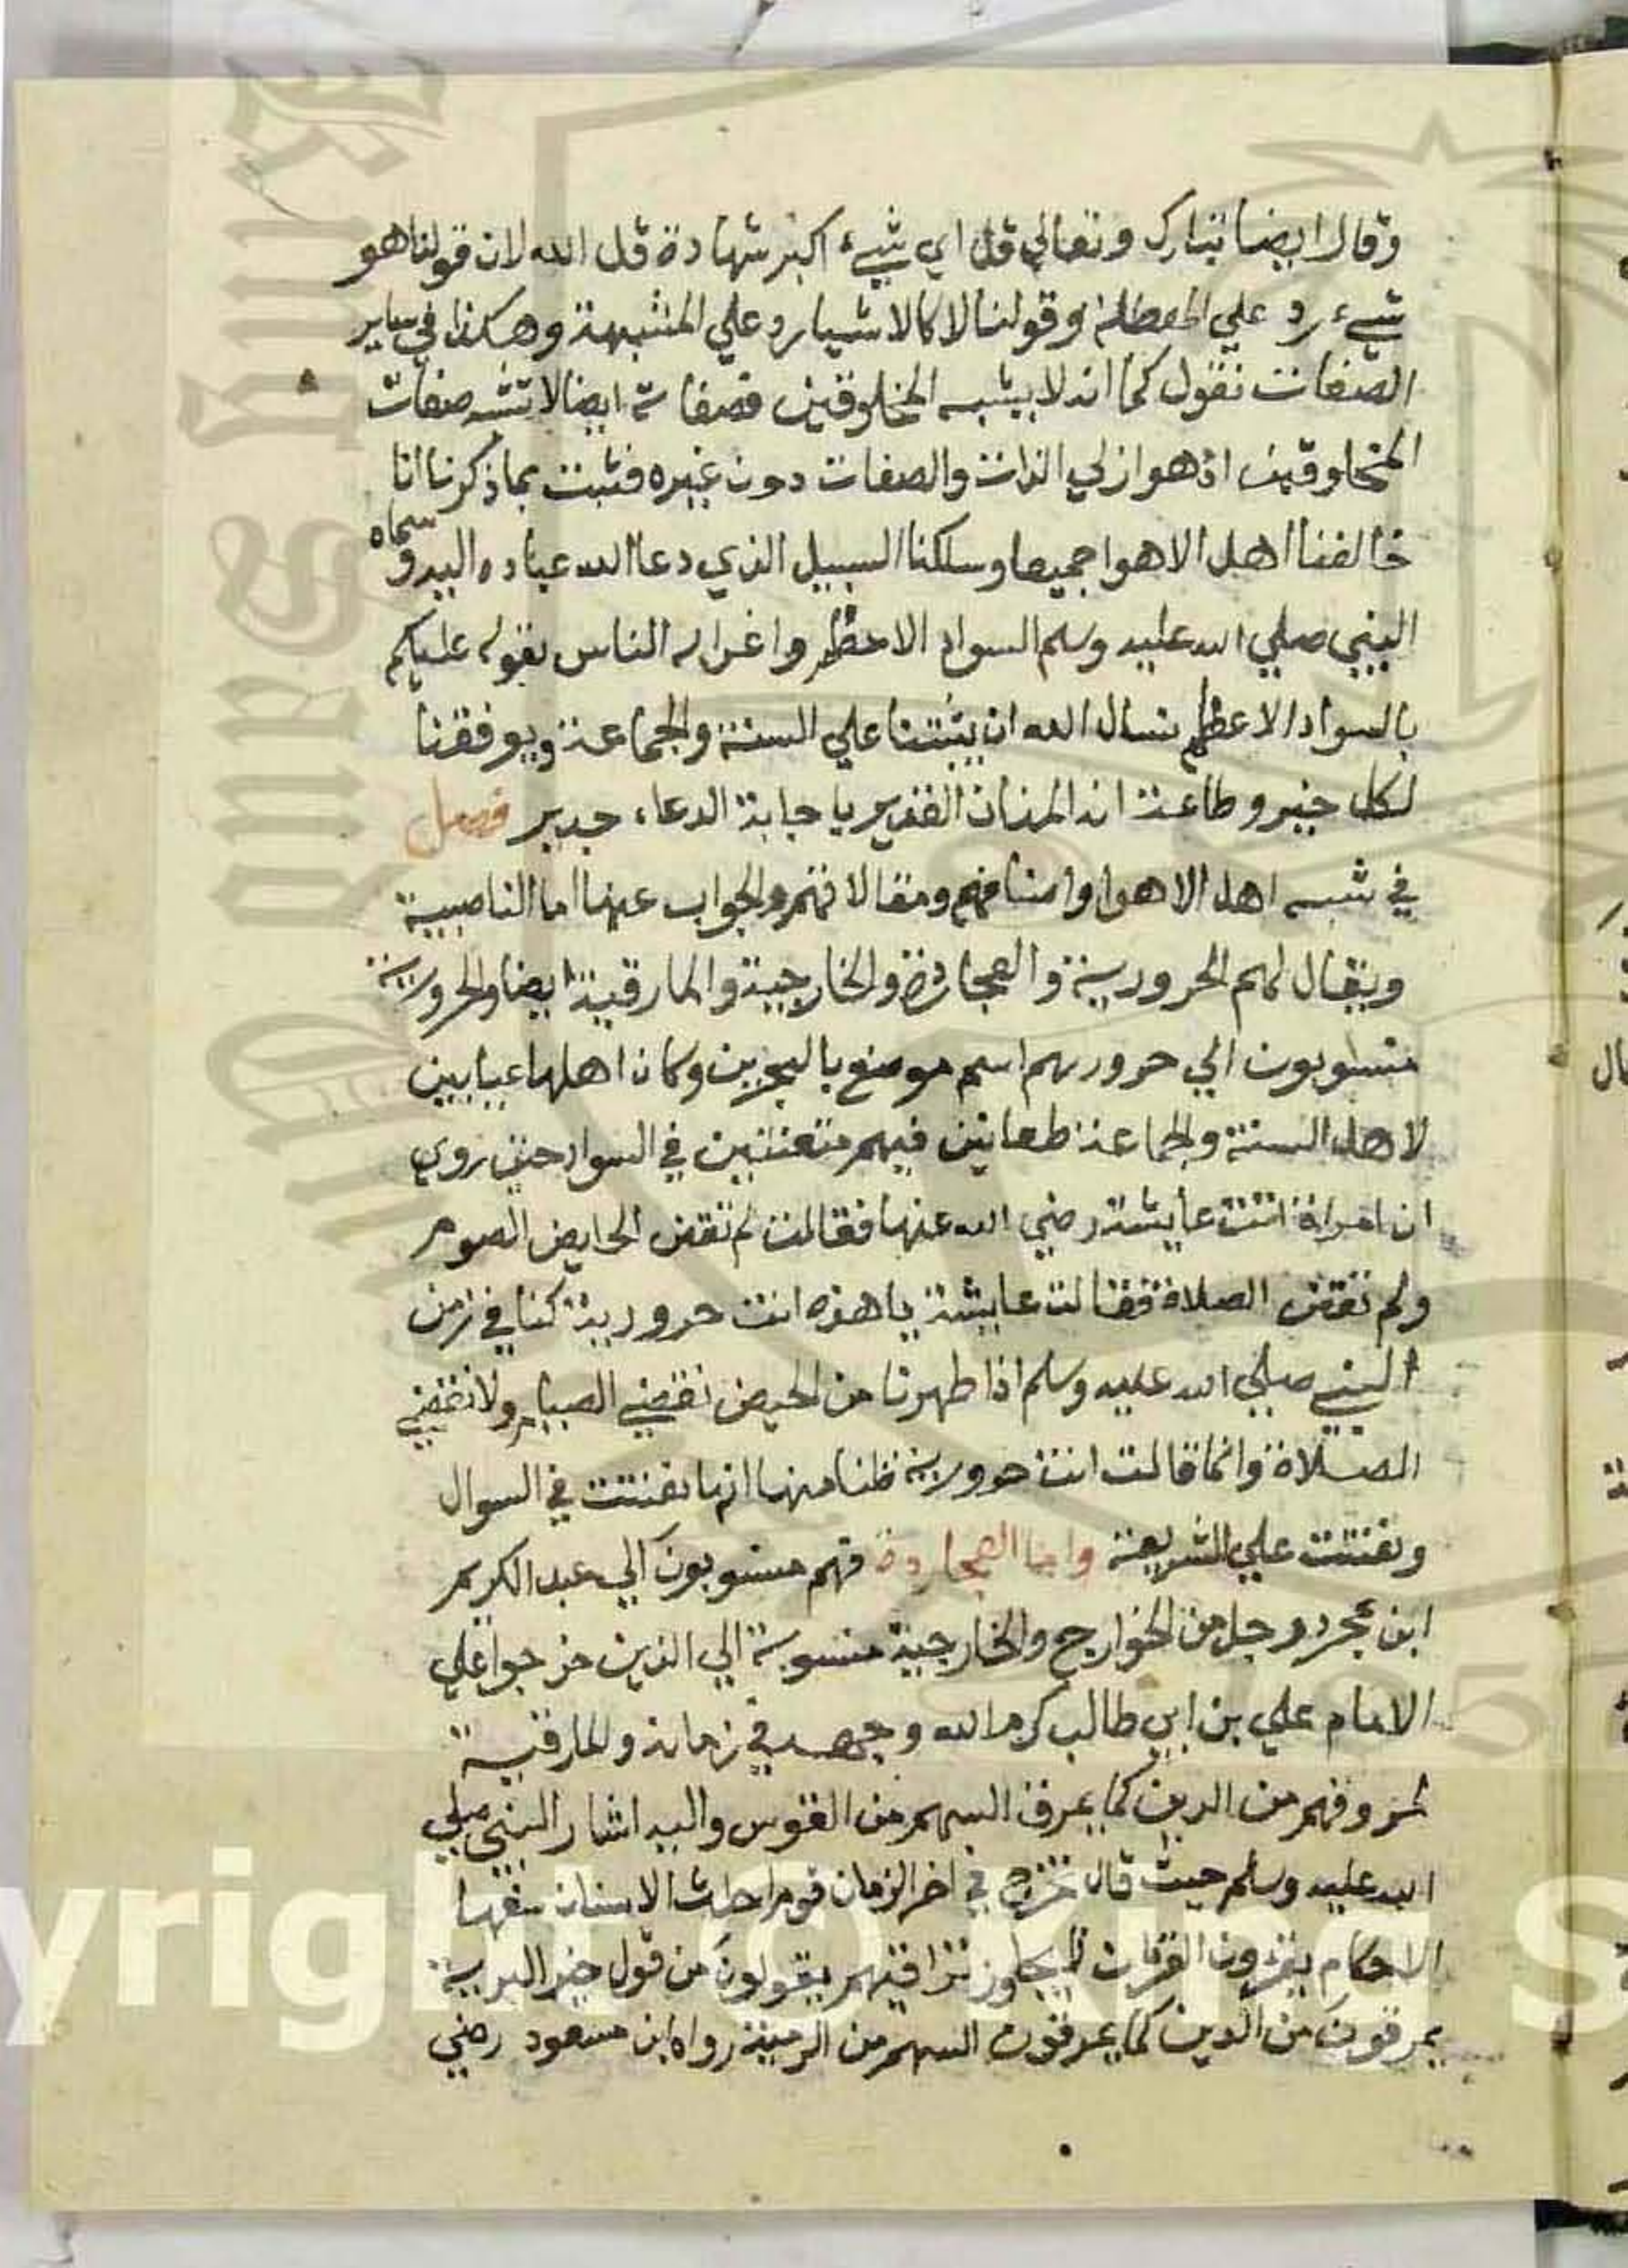 وقال ايضا تبارك وتعالي قل اي شيء اكبر شهادة قل الله لان قولنا هو
شيء رد علي المعطلة وقولنا لا كالاشيا رد علي المشبهة وهكذا في ساير
الصفات نقول كما انه لا يشبه المخلوقين فصفاته ايضا لا تشبه صفات
المخلوقين اذ هو ازلي الذات والصفات دون غيره فثبت بما ذكرنا انا
خالفنا اهل الاهوا جميعا وسلكنا السبيل الذي دعا الله عباده اليه وسماه
النبي صلي الله عليه وسلم السواد الاعظم واغرا به الناس بقوله عليكم
بالسواد الاعظم نسال الله ان يثبتنا علي السنة والجماعة ويوفقنا
لكل خير وطاعة انه المنان القدير باجابة الدعاء جدير فصل
في شبه اهل الاهوا واصنافهم ومقالاتهم والجواب عنها اما الناصبية
ويقال لهم الحرورية والعجاردة والخارجية والمارقية ايضا والحرورية
منسوبون الي حرور بهم اسم موضع بالبحرين وكان اهلها عيابين
لاهل السنة والجماعة طعانين فيهم متعنتين في السوال حتى روي
ان امراة اتت عايشة رضي الله عنها فقالت لم تقض الحايض الصوم
ولم تقض الصلاة فقالت عايشة يا هذه انت حرورية كنا في زمن
النبي صلي الله عليه وسلم اذا طهرنا من الحيض نقضي الصيام ولا نقضي
الصلاة وانما قالت انت حرورية ظنا منها انها تعنتت في السوال
وتعنتت علي الشريعة واما العجاردة فهم منسوبون الي عبد الكريم
ابن عجرد رجل من الخوارج والخارجية منسوبة الي الذين خرجوا علي
الامام علي بن ابي طالب كرم الله وجهه في زمانه والمارقية
لمروقهم من الدين كما يمرق السهم من القوس واليه اشار النبي صلي
الله عليه وسلم حيث قال تخرج في اخر الزمان قوم احداث الاسنان سفها
الاحكام يقرون القران لا يجاوز تراقيهم يقولون من قول خير البرية
يمرقون من الدين كما يمرقون السهم من الرمية رواه ابن مسعود رضي
yright © King S